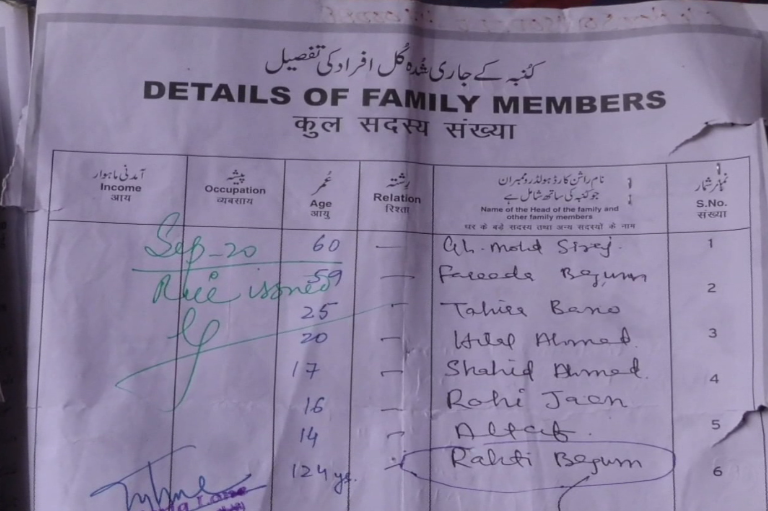 کنبہ کے جاری شدہ کل افراد کی تفصیل
DETAILS OF FAMILY MEMBERS
कुल सदस्य संख्या
آمدنی ماہوار
Income
आय
پیشہ
Occupation
व्यवसाय
عمر
Age
आयु
رشتہ
Relation
रिश्ता
نام راشن کارڈ ہولڈر و ممبران
جو کنبہ کی ساتھ شامل ہے
Name of the Head of the family and
other family members
घर के बड़े सदस्य तथा अन्य सदस्यों के नाम
نمبر شمار
S.No.
संख्या
Sep-20 60 — Gh. Mohd Siraj. 1
59 — Fareeda Begum 2
Rice issued
25 Tahira Bano
20 — Hilal Ahmad 3
17 Shahid Ahmad. 4
16 — Rohi Jaan
14 Altaf. 5
124 ys. Rahti Begum 6